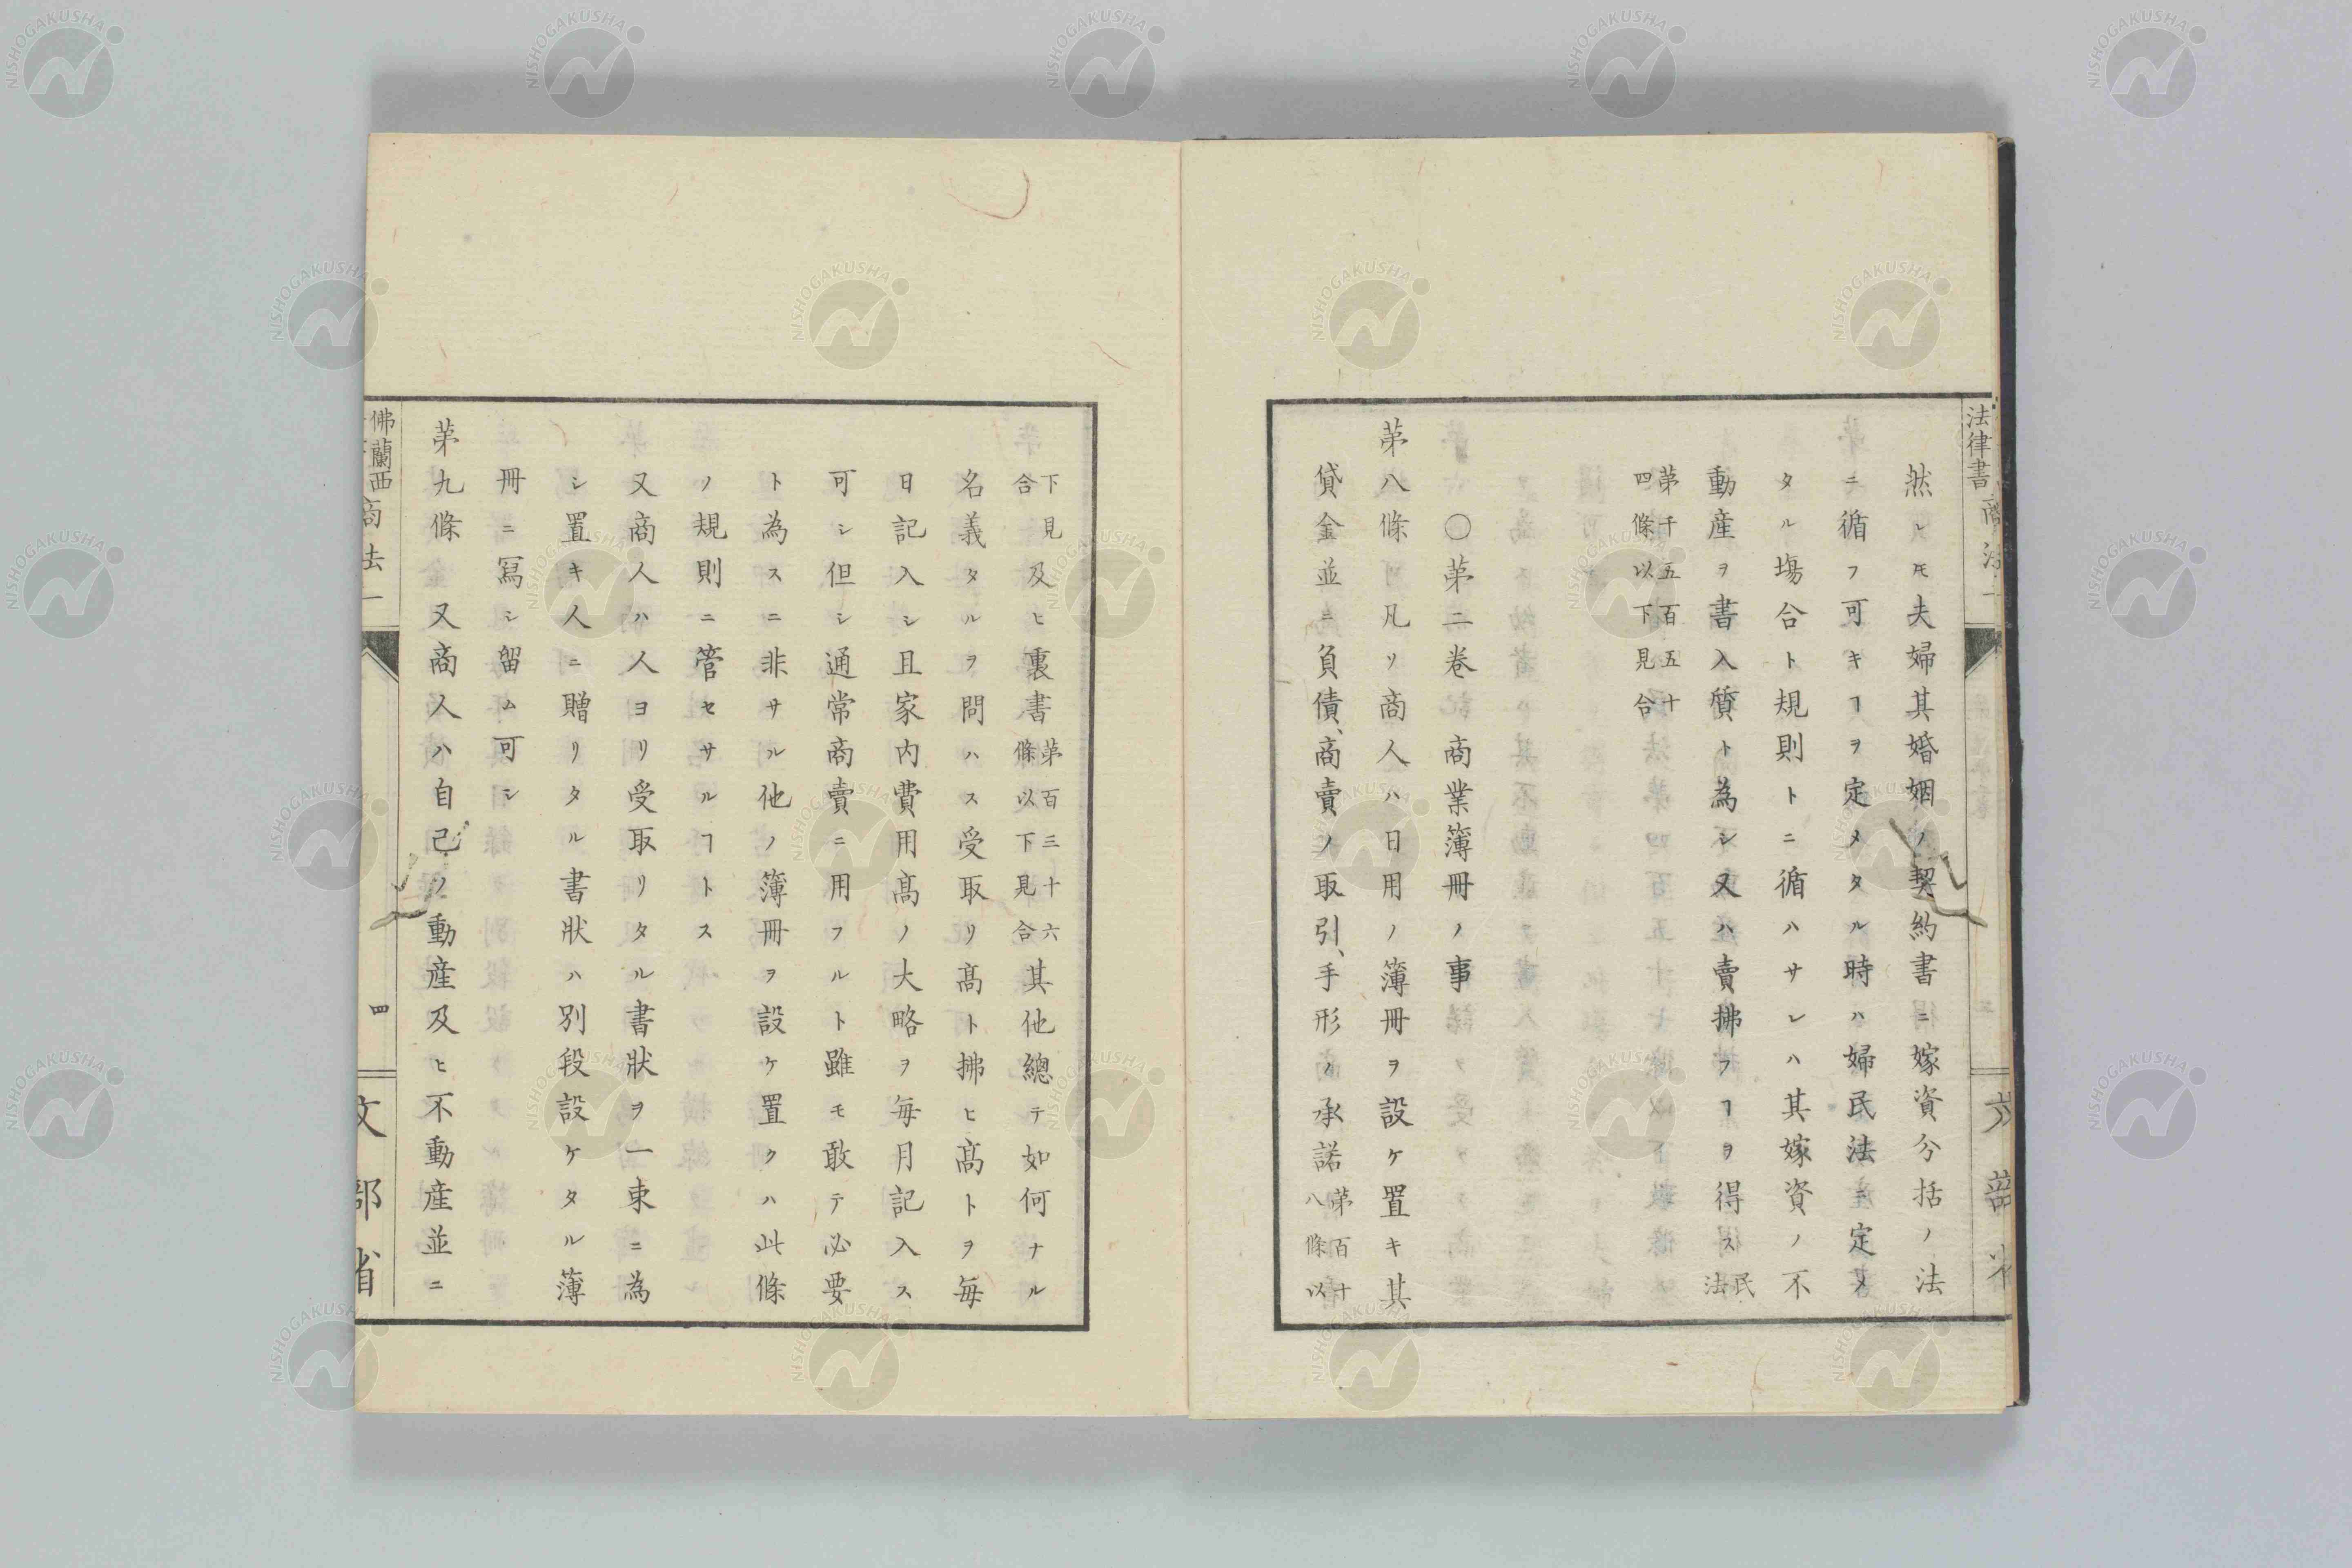 法律書 商法一
然レ𪜈夫婦其婚姻ノ契約書ニ嫁資分括ノ法
ニ循フ可キヿヲ定メタル時ハ婦民法ニ定メ
タル塲合ト規則トニ循ハサレハ其嫁資ノ不
動産ヲ書入質ト為シ又ハ賣拂フヿヲ得ス民法
第千五百五十
四條以下見合
〇第二巻 商業簿冊ノ事
第八條 凡ソ商人ハ日用ノ簿冊ヲ設ケ置キ其
貸金並ニ負債、商賣ノ取引、手形ノ承諾第百十八條以
下見合及ヒ裏書第百三十六條以下見合其他總テ如何ナル
名義タルヲ問ハス受取リ髙ト拂ヒ髙トヲ毎
日記入シ且家内費用髙ノ大略ヲ毎月記入ス
可シ但シ通常商賣ニ用フルト雖モ敢テ必要
ト為スニ非サル他ノ簿冊ヲ設ケ置クハ此條
ノ規則ニ管セサルヿトス
又商人ハ人ヨリ受取リタル書狀ヲ一束ニ為
シ置キ人ニ贈リタル書狀ハ別段設ケタル薄
冊ニ寫シ留ム可シ
第九條 又商人ハ自己ノ動産及ヒ不動産並ニ
佛蘭西 商法一
四
文部省
NISHOGAKUSHA